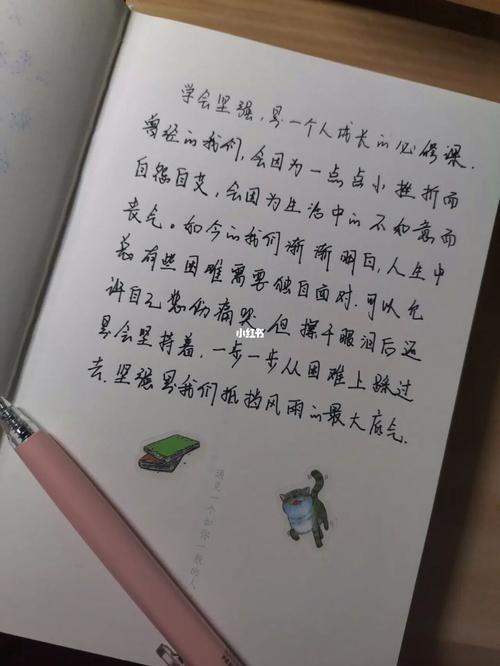 学会坚强，是一个人成长的必修课.
曾经的我们，会因为一点点小挫折而
自怨自艾，会因为生活中的不如意而
丧气。如今的我们渐渐明白，人生中
总有些困难需要独自面对.可以允
许自己悲伤痛哭 但擦干眼泪后还
是会坚持着，一步一步从困难上跺过
去.坚强是我们抵挡风雨的最大底气.
小红书
遇见一个如你一般的人